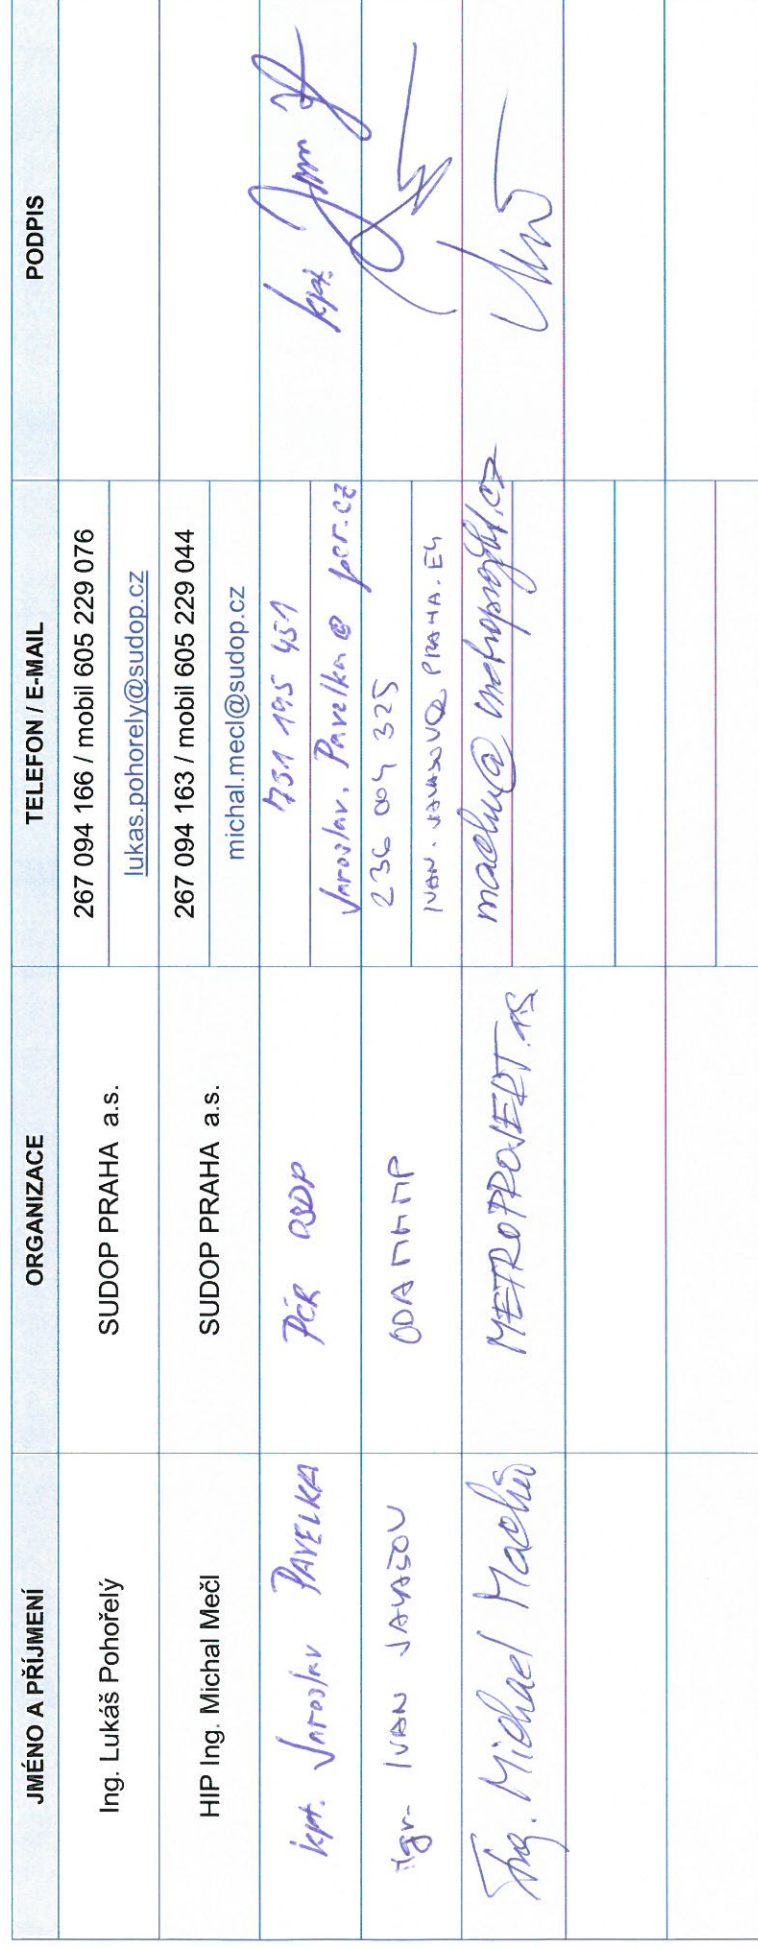 JMÉNO A PŘÍJMENÍ ORGANIZACE TELEFON / E-MAIL PODPIS
Ing. Lukáš Pohořelý SUDOP PRAHA a.s. 267 094 166 / mobil 605 229 076
lukas.pohorely@sudop.cz
HIP Ing. Michal Mečl SUDOP PRAHA a.s. 267 094 163 / mobil 605 229 044
michal.mecl@sudop.cz
kpt. Jaroslav PAVELKA PČR 731 195 451 kpt.
Jaroslav.Pavelka@pcr.cz
Mgr. IVAN ODA MHMP 236 004 325
Ing. Michael Machů METROPROJEKT as machu@metroprojekt.cz